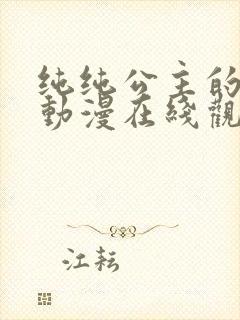 纯纯公主的
動漫在綫觀
江耘